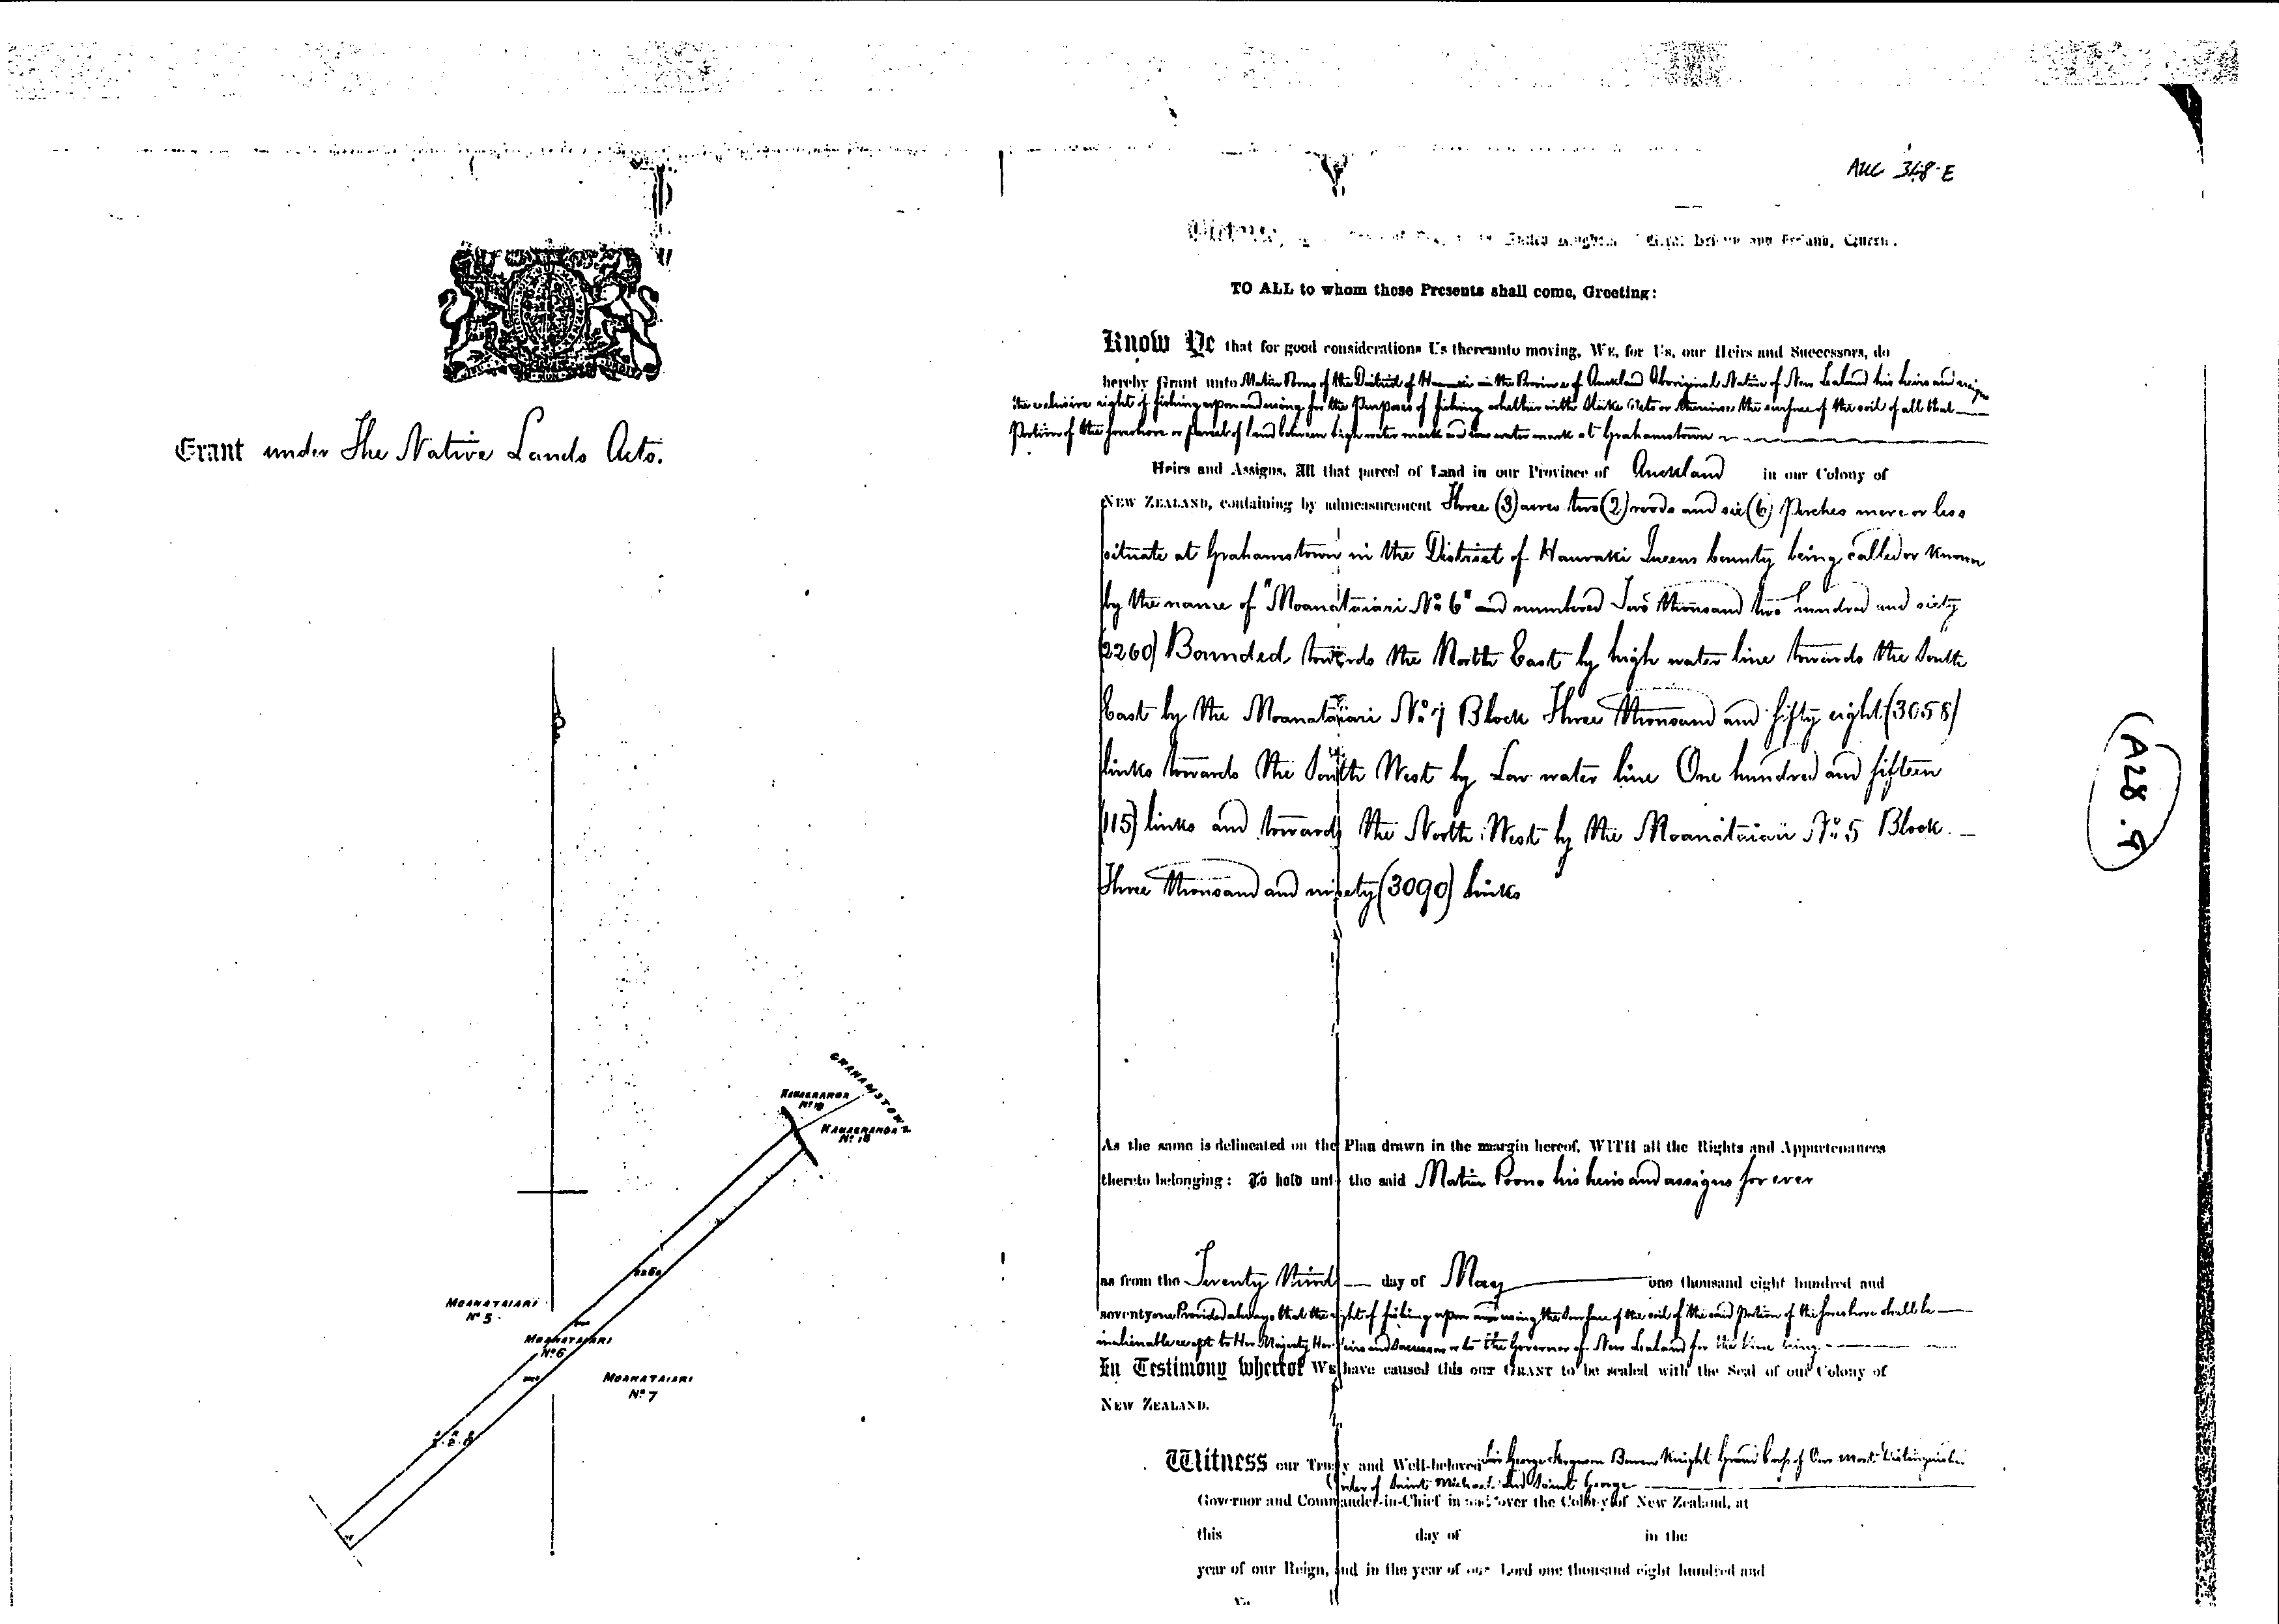 AUC 348-E
Grant under The Native Lands Acts.
TO ALL to whom these Presents shall come, Greeting:
Know Ye that for good considerations Us thereunto moving, WE, for Us, our Heirs and Successors, do
hereby Grant unto of the District of Hauraki in the Province of Auckland Aboriginal Native of New Zealand his heirs and assigns
the exclusive right of fishing upon and using for the purposes of fishing whether with Stake Nets or otherwise the surface of the soil of all that
Portion of the foreshore or parcel of land between high water mark and low water mark at Grahamstown
Heirs and Assigns, All that parcel of Land in our Province of Auckland in our Colony of
NEW ZEALAND, containing by admeasurement Three (3) acres two (2) roods and six (6) Perches more or less
situate at Grahamstown in the District of Hauraki Queens County being called or known
by the name of "Moanataiari No. 6" and numbered Two thousand two hundred and sixty
(2260) Bounded towards the North East by high water line towards the South
East by the Moanataiari No. 7 Block Three thousand and fifty eight (3058)
links towards the South West by Low water line One hundred and fifteen
(115) links and towards the North West by the Moanataiari No. 5 Block.
Three thousand and ninety (3090) links
As the same is delineated on the Plan drawn in the margin hereof, WITH all the Rights and Appurtenances
thereto belonging: To hold unto the said his heirs and assigns for ever
as from the Twenty third day of May one thousand eight hundred and
seventy one Provided always that the right of fishing upon and using the surface of the soil of the said portion of the foreshore shall be
inalienable except to Her Majesty Her Heirs and Successors or to the Governor of New Zealand for the time being.
In Testimony whereof WE have caused this our GRANT to be sealed with the Seal of our Colony of
NEW ZEALAND.
Witness our Trusty and Well-beloved Sir George Ferguson Bowen Knight Grand Cross of Our most Distinguished
Order of Saint Michael and Saint George
Governor and Commander-in-Chief in and over the Colony of New Zealand, at
this day of in the
year of our Reign, and in the year of our Lord one thousand eight hundred and
(A28.9)
GRAHAMSTOWN
KAUAERANGA
No 19
KAUAERANGA
No 18
2260
MOANATAIARI
No 5
MOANATAIARI
No 6
MOANATAIARI
No 7
3. 2. 6